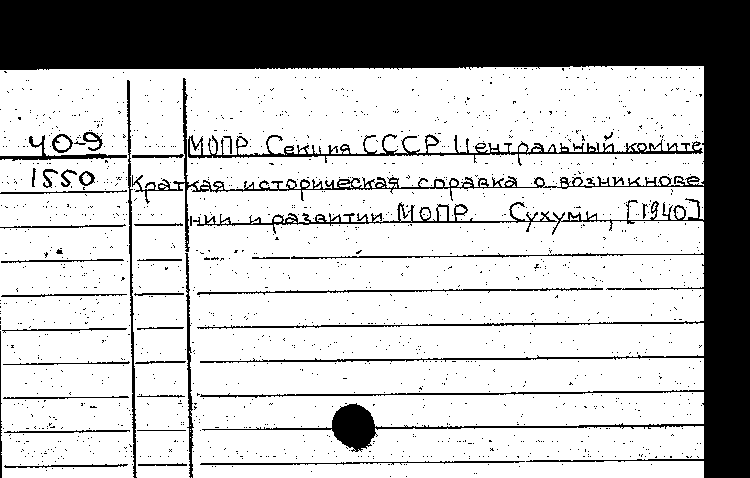 40-9 МОПР. Секция СССР. Центральный комите
1550 Краткая историческая справка о возникнове
нии и развитии МОПР. Сухуми, [1940]